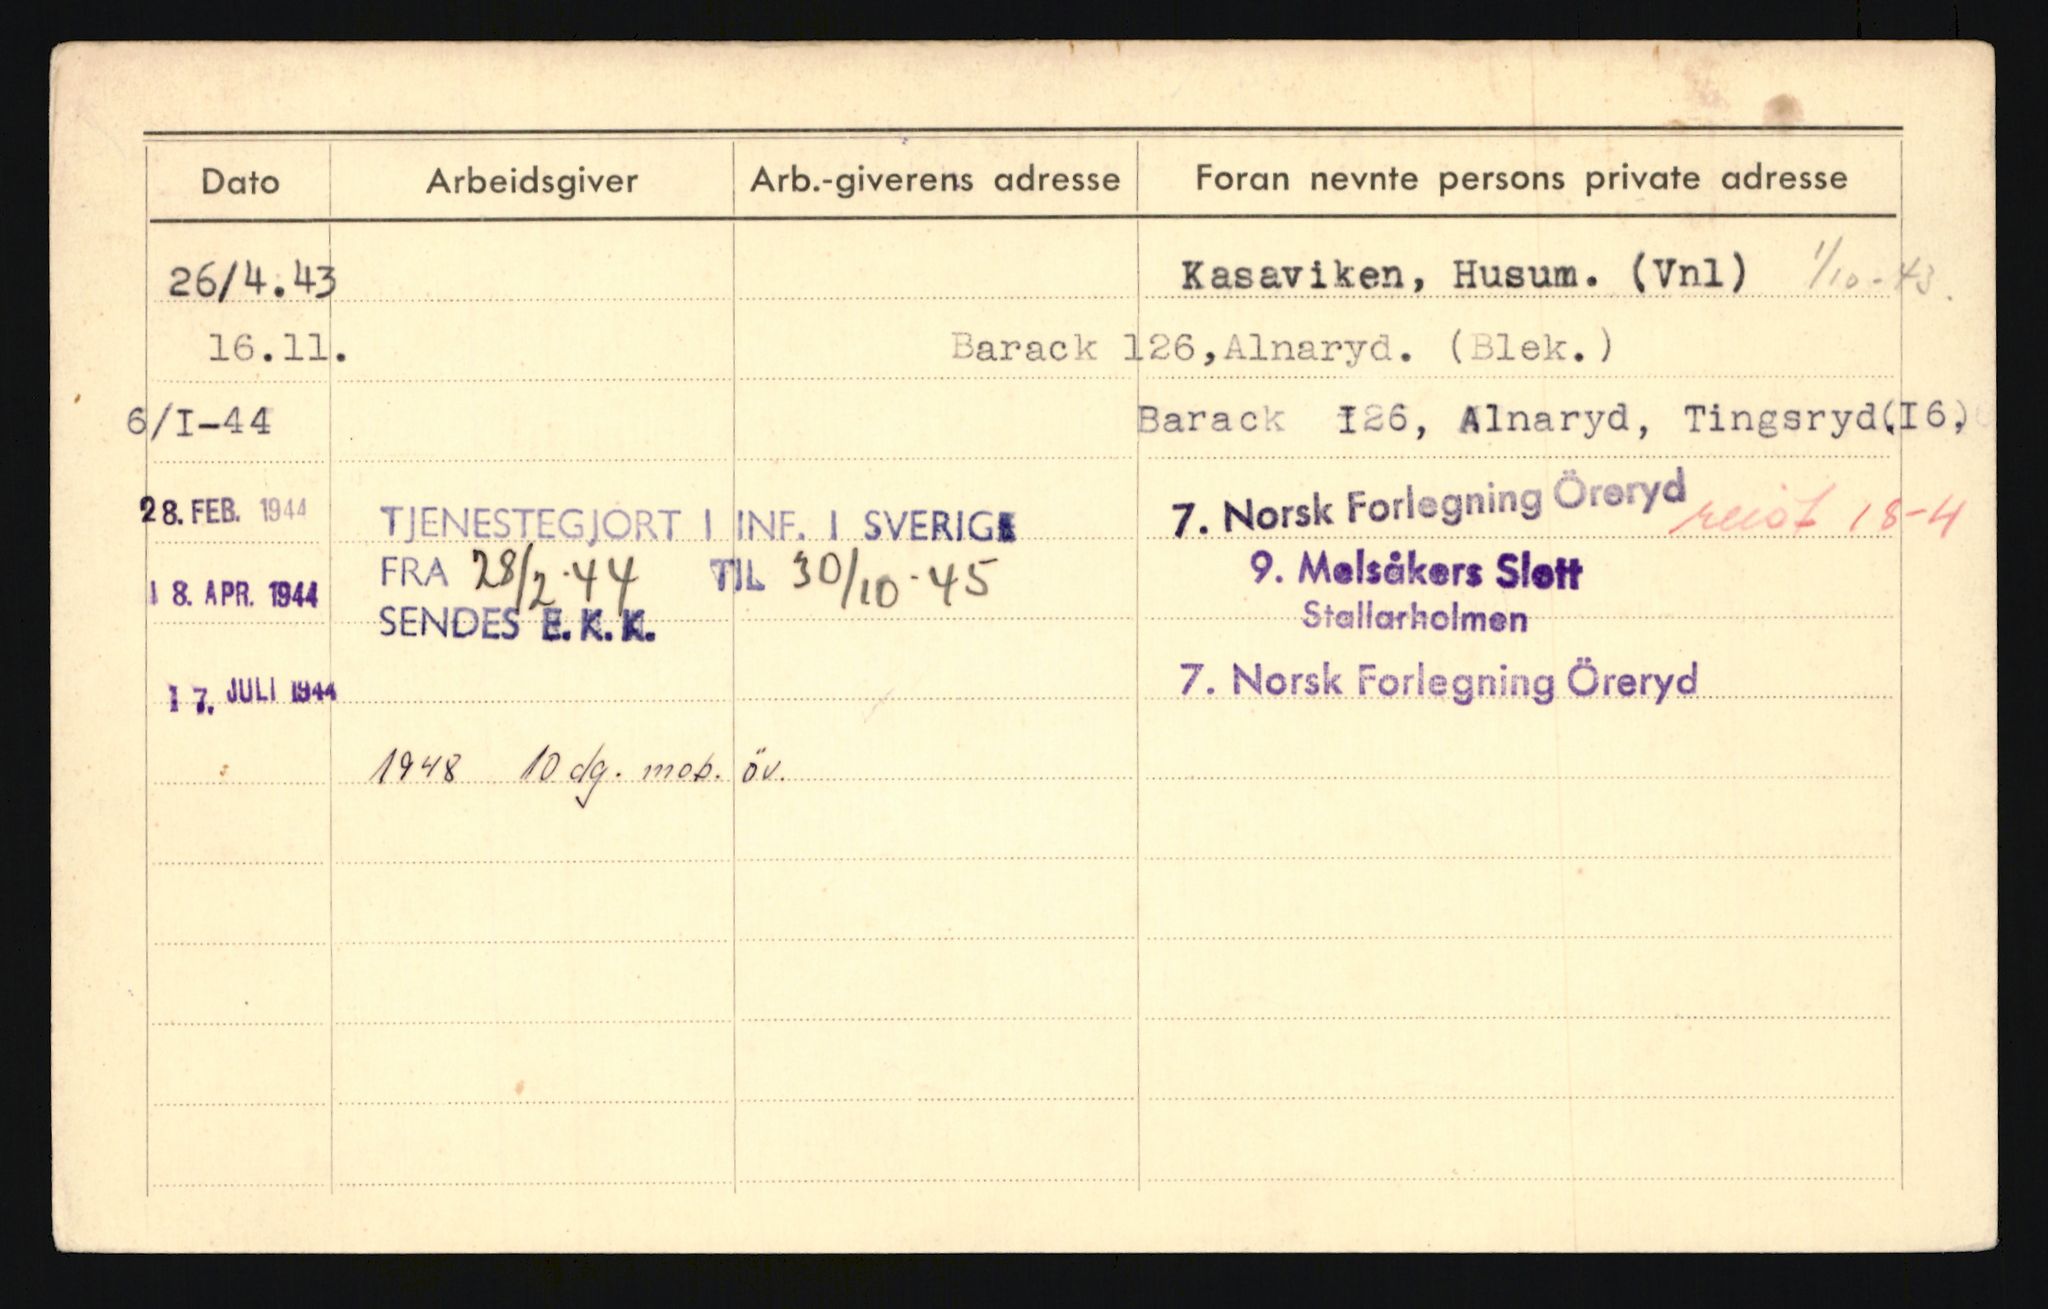 Dato Arbeidsgiver Arb.-giverens adresse Foran nevnte persons private adresse
26/4.43 Kasaviken, Husum. (Vnl) 1/10-43.
16.11. Barack 126,Alnaryd. (Blek.)
6/I-44 Barack I26, Alnaryd, Tingsryd(I6)
28. FEB. 1944 TJENESTEGJORT I INF. I SVERIGE 7. Norsk Forlegning Öreryd reist 18-4
FRA 28/2-44 TIL 30/10-45 9. Melsåkers Slott
18. APR. 1944 SENDES E.K.K. Stallarholmen
17. JULI 1944 7. Norsk Forlegning Öreryd
1948 10 dg. mob. öv.